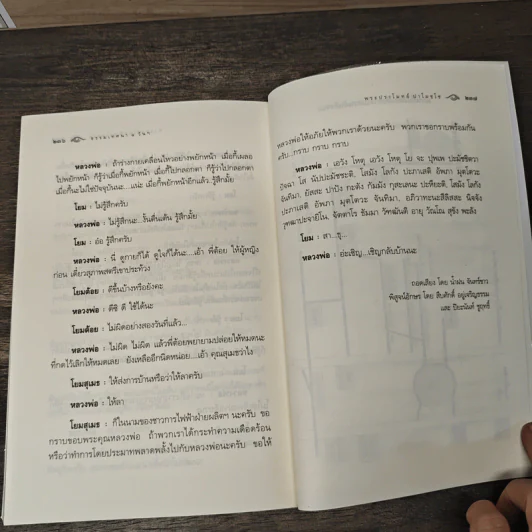 ๒๓๖
หลวงพ่อ : ถ้าร่างกายเคลื่อนไหวอย่างพยักหน้า เมื่อกี้เผลอ
ไปพยักหน้า ก็รู้ว่าเมื่อกี้พยักหน้า เมื่อกี้ไปกลอกตา ก็รู้ว่าไปกลอกตา
เมื่อกี้นะไม่ใช่ปัจจุบันนะ...แนะ เมื่อกี้พยักหน้าอีกแล้ว รู้สึกมั้ย
โยม : ไม่รู้สึกครับ
หลวงพ่อ : ไม่รู้สึกนะ...งั้นตื่นเต้น รู้สึกมั้ย
โยม : อ๋อ รู้สึกครับ
หลวงพ่อ : นี่ ดูกายก็ได้ ดูใจก็ได้นะ...เอ้า พี่ต้อย ให้ผู้หญิง
ก่อน เดี๋ยวสุภาพสตรีเขาประท้วง
โยมต้อย : ดีขึ้นบ้างหรือยังคะ
หลวงพ่อ : ดีซิ ดี ใช้ได้นะ
โยมต้อย : ไม่ผิดอย่างสองวันที่แล้ว...
หลวงพ่อ : ไม่ผิด ไม่ผิด แล้วพี่ต้อยพยายามปล่อยให้หมดนะ
ที่กดไว้เลิกให้หมดเลย ยังเหลืออีกนิดหน่อย...เอ้า คุณสุเมธว่าไง
โยมสุเมธ : ให้ส่งการบ้านหรือว่าให้ลาครับ
หลวงพ่อ : ให้ลา
โยมสุเมธ : ก็ในนามของชาวการไฟฟ้าฝ่ายผลิตฯ นะครับ ขอ
กราบขอบพระคุณหลวงพ่อ ถ้าพวกเราได้กระทำความเดือดร้อน
หรือว่าทำการโดยประมาทพลาดพลั้งไปกับหลวงพ่อนะครับ ขอให้
พระปราโมทย์ ปาโมชฺโช
๒๓๗
หลวงพ่อให้อภัยให้พวกเราด้วยนะครับ พวกเราขอกราบพร้อมกัน
ครับ...กราบ กราบ กราบ
หลวงพ่อ : เอวัง โหตุ เอวัง โหตุ โย จะ ปุพเพ ปะมัชชิตวา
ปัจฉา โส นัปปะมัชชะติ, โสมัง โลกัง ปะภาเสติ อัพภา มุตโตวะ
จันทิมา, ยัสสะ ปาปัง กะตัง กัมมัง กุสะเลนะ ปะหียะติ, โสมัง โลกัง
ปะภาเสติ อัพภา มุตโตวะ จันทิมา, อภิวาทะนะสีลิสสะ นิจจัง
วุฑฒาปะจายิโน, จัตตาโร ธัมมา วัฑฒันติ อายุ วัณโณ สุขัง พะลัง
โยม : สา...ธุ...
หลวงพ่อ : อ้ะเชิญ...เชิญกลับบ้านนะ
ถอดเสียง โดย น้ำฝน จันทร์ขาว
พิสูจน์อักษร โดย สืบศักดิ์ อยู่เจริญธรรม
และ ปิยะนันท์ ชูฤทธิ์